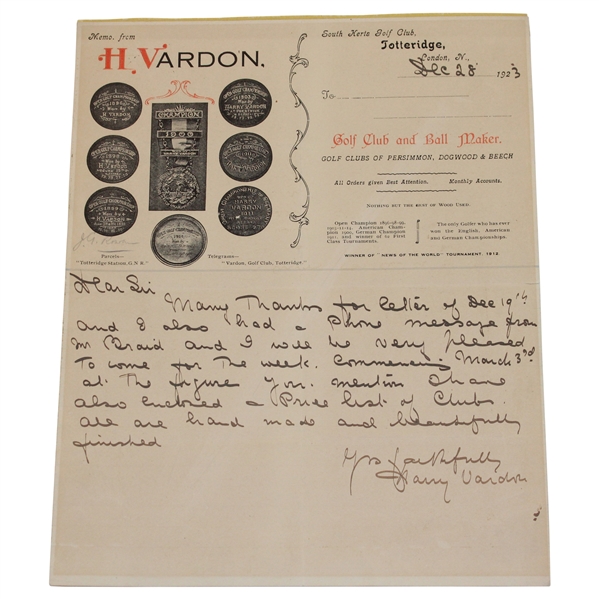 Memo. from
H. VARDON.
South Herts Golf Club,
Totteridge,
London, N.,
Dec 28 1923
To
CHAMPION
1900
Golf Club and Ball Maker.
GOLF CLUBS OF PERSIMMON, DOGWOOD & BEECH
All Orders given Best Attention. Monthly Accounts.
NOTHING BUT THE BEST OF WOOD USED.
Open Champion 1896-98-99,
1903-11-14, American Cham-
pion 1900, German Champion
1911, and winner of 62 First
Class Tournaments.
The only Golfer who has ever
won the English, American
and German Championships.
WINNER OF "NEWS OF THE WORLD" TOURNAMENT, 1912.
Parcels—
"Totteridge Station, G.N.R."
Telegrams—
"Vardon, Golf Club, Totteridge."
Dear Sir
Many Thanks for letter of Dec 19th
and I also had a Phone message from
Mr Braid and I will be very pleased
To come for The week. Commencing March 3rd
at The figure you. mention I have
also enclosed a Price list of Clubs.
All are hand made and beautifully
finished
Yrs faithfully
Harry Vardon